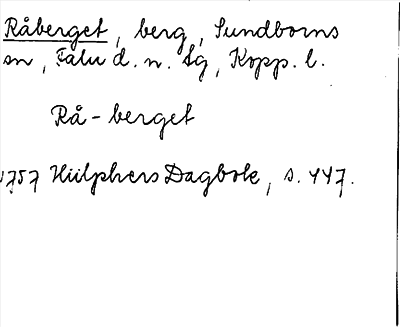 Råberget, berg, Sundborns
sn, Falu d. n. tg, Kopp. l.
Rå-berget
1757 Hülphers Dagbok, s. 447.